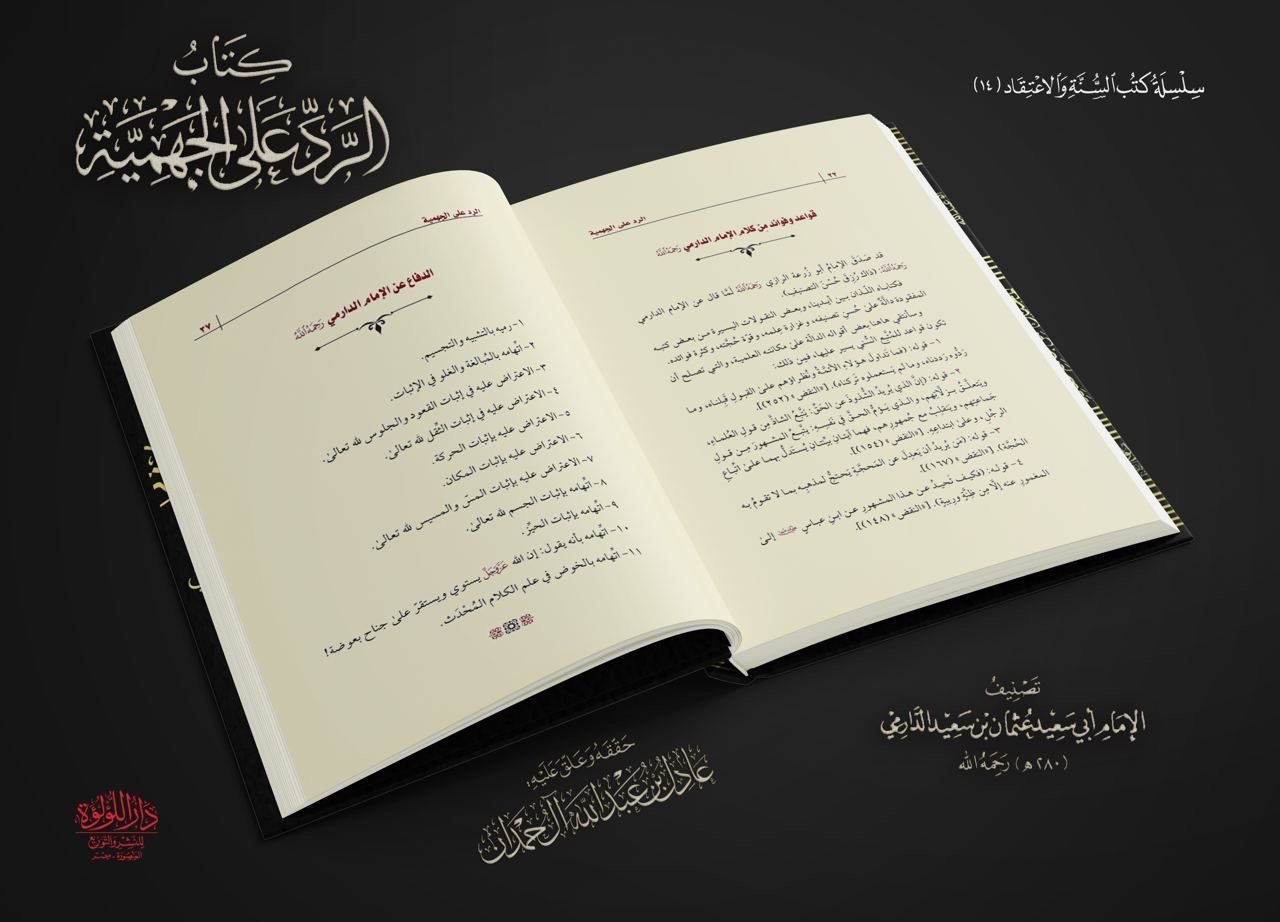 سِلْسِلَةُ كُتُبِ السُّنَّةِ وَالِاعْتِقَادِ (١٤)
كِتَابُ
الرَّدِّ عَلَى الجَهْمِيَّةِ
٢٢
الرد على الجهمية
قواعد وفوائد من كلام الإمام الدارمي رَحِمَهُ اللهُ
قد صَدَقَ الإمامُ أبو زُرعة الرازي رَحِمَهُ اللهُ لمَّا قال عن الإمام الدارمي
رَحِمَهُ اللهُ: (ذاك رُزِقَ حُسنَ التصنيف).
فكتاباه اللَّذان بين أيدينا، وبعض النقولات اليسيرة من بعض كتبه
المفقودة دالَّةٌ على حُسنِ تصنيفه، وغزارة علمه، وقوَّة حُجَّته، وكثرة فوائده.
وسأنتقي هاهنا بعض أقواله الدالَّة على مكانته العلمية، والتي تصلح أن
تكون قواعد للمتَّبع السُّني يسير عليها، فمِن ذلك:
١- قوله: (فما تداول هؤلاء الأئمَّة ونُظراؤهم على القبول قَبِلناه، وما
ردُّوه رَددناه، وما لم يَستعملوه تركناه). [«النقض» (٢٥٢)].
٢- قوله: (إنَّ الذي يُريدُ الشُّذوذَ عن الحقِّ: يتَّبعُ الشاذَّ مِن قول العُلماءِ،
ويتعلَّقُ بزلَّاتهم، والذي يَؤمُّ الحقَّ في نفسِهِ: يتَّبعُ المشهورَ مِن قولِ
جماعتِهم، ويَنقلِبُ مع جُمهورِهم، فهما آيتانِ بيِّنتانِ يُستدلُّ بهما على اتِّباعِ
الرجُلِ، وعلى ابتداعِهِ). [«النقض» (١٥٤)].
٣- قوله: (مَن يُريدُ أن يَعدِلَ عن المَحجَّةِ يَحتجُّ لمذهبِهِ بما لا تقومُ به
الحُجَّة). [«النقض» (١٦٧)].
٤- قوله: (فكيف تَحيدُ عن هذا المشهورِ عن ابنِ عباسٍ إلى
المغمورِ عنه إلَّا مِن ظِنَّةٍ ورِيبةٍ). [«النقض» (١٤٨)].
الرد على الجهمية
٢٧
الدفاع عن الإمام الدارمي رَحِمَهُ اللهُ
١- رميه بالتشبيه والتجسيم.
٢- اتِّهامه بالمُبالغة والغلو في الإثبات.
٣- الاعتراض عليه في إثبات القعود والجلوس لله تعالى.
٤- الاعتراض عليه في إثبات الثِّقَل لله تعالى.
٥- الاعتراض عليه بإثبات الحركة.
٦- الاعتراض عليه بإثبات المكان.
٧- الاعتراض عليه بإثبات المسّ والمسيس لله تعالى.
٨- اتِّهامه بإثبات الجسم لله تعالى.
٩- اتِّهامه بإثبات الحيِّز.
١٠- اتِّهامه بأنه يقول: إن الله عَزَّوَجَلَّ يستوي ويستقرّ على جناح بعوضة!
١١- اتِّهامه بالخوض في علم الكلام المُحْدَث.
تَصْنِيفُ
الإِمَامِ أَبِي سَعِيدٍ عُثْمَانَ بْنِ سَعِيدٍ الدَّارِمِيِّ
(٢٨٠هـ) رَحِمَهُ اللهُ
حَقَّقَهُ وَعَلَّقَ عَلَيْهِ:
عَادِلُ بْنُ عَبْدِ اللهِ آلُ حَمْدَان
دَارُ اللُّؤْلُؤَة
لِلنَّشْرِ وَالتَّوْزِيعِ
المَنْصُورَة - مِصْر